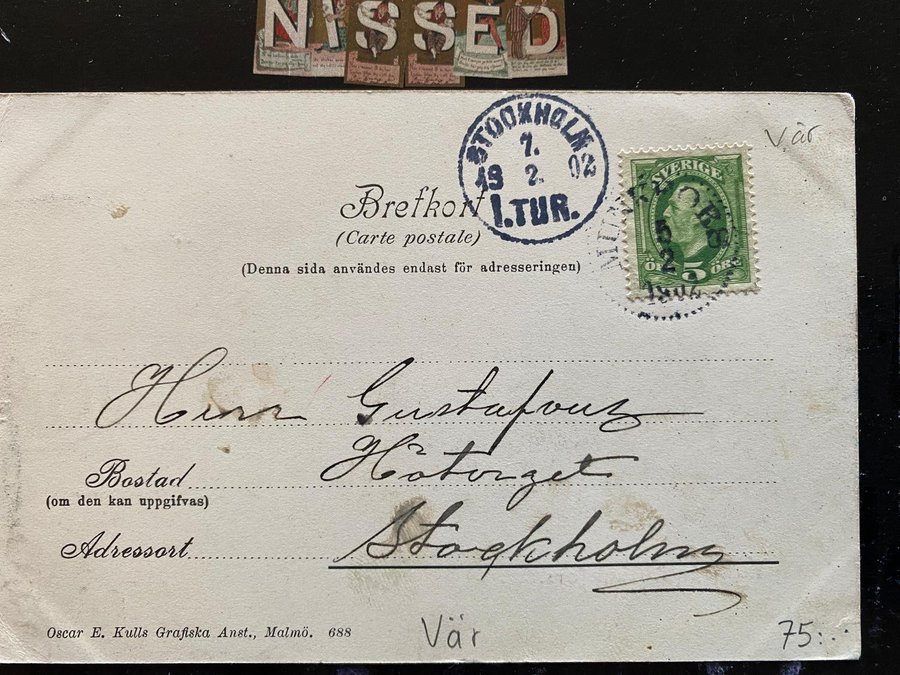 NISSED
STOCKHOLM
7.
19 2. 02
1.TUR.
V.är
SVERIGE
MUNKFORS
5
2
1902
ÖRE 5 ÖRE
Brefkort
(Carte postale)
(Denna sida användes endast för adresseringen)
Herr Gustafsson
Hötorget
Bostad
(om den kan uppgifvas)
Adressort Stockholm
Oscar E. Kulls Grafiska Anst., Malmö. 688
Vär
75:-